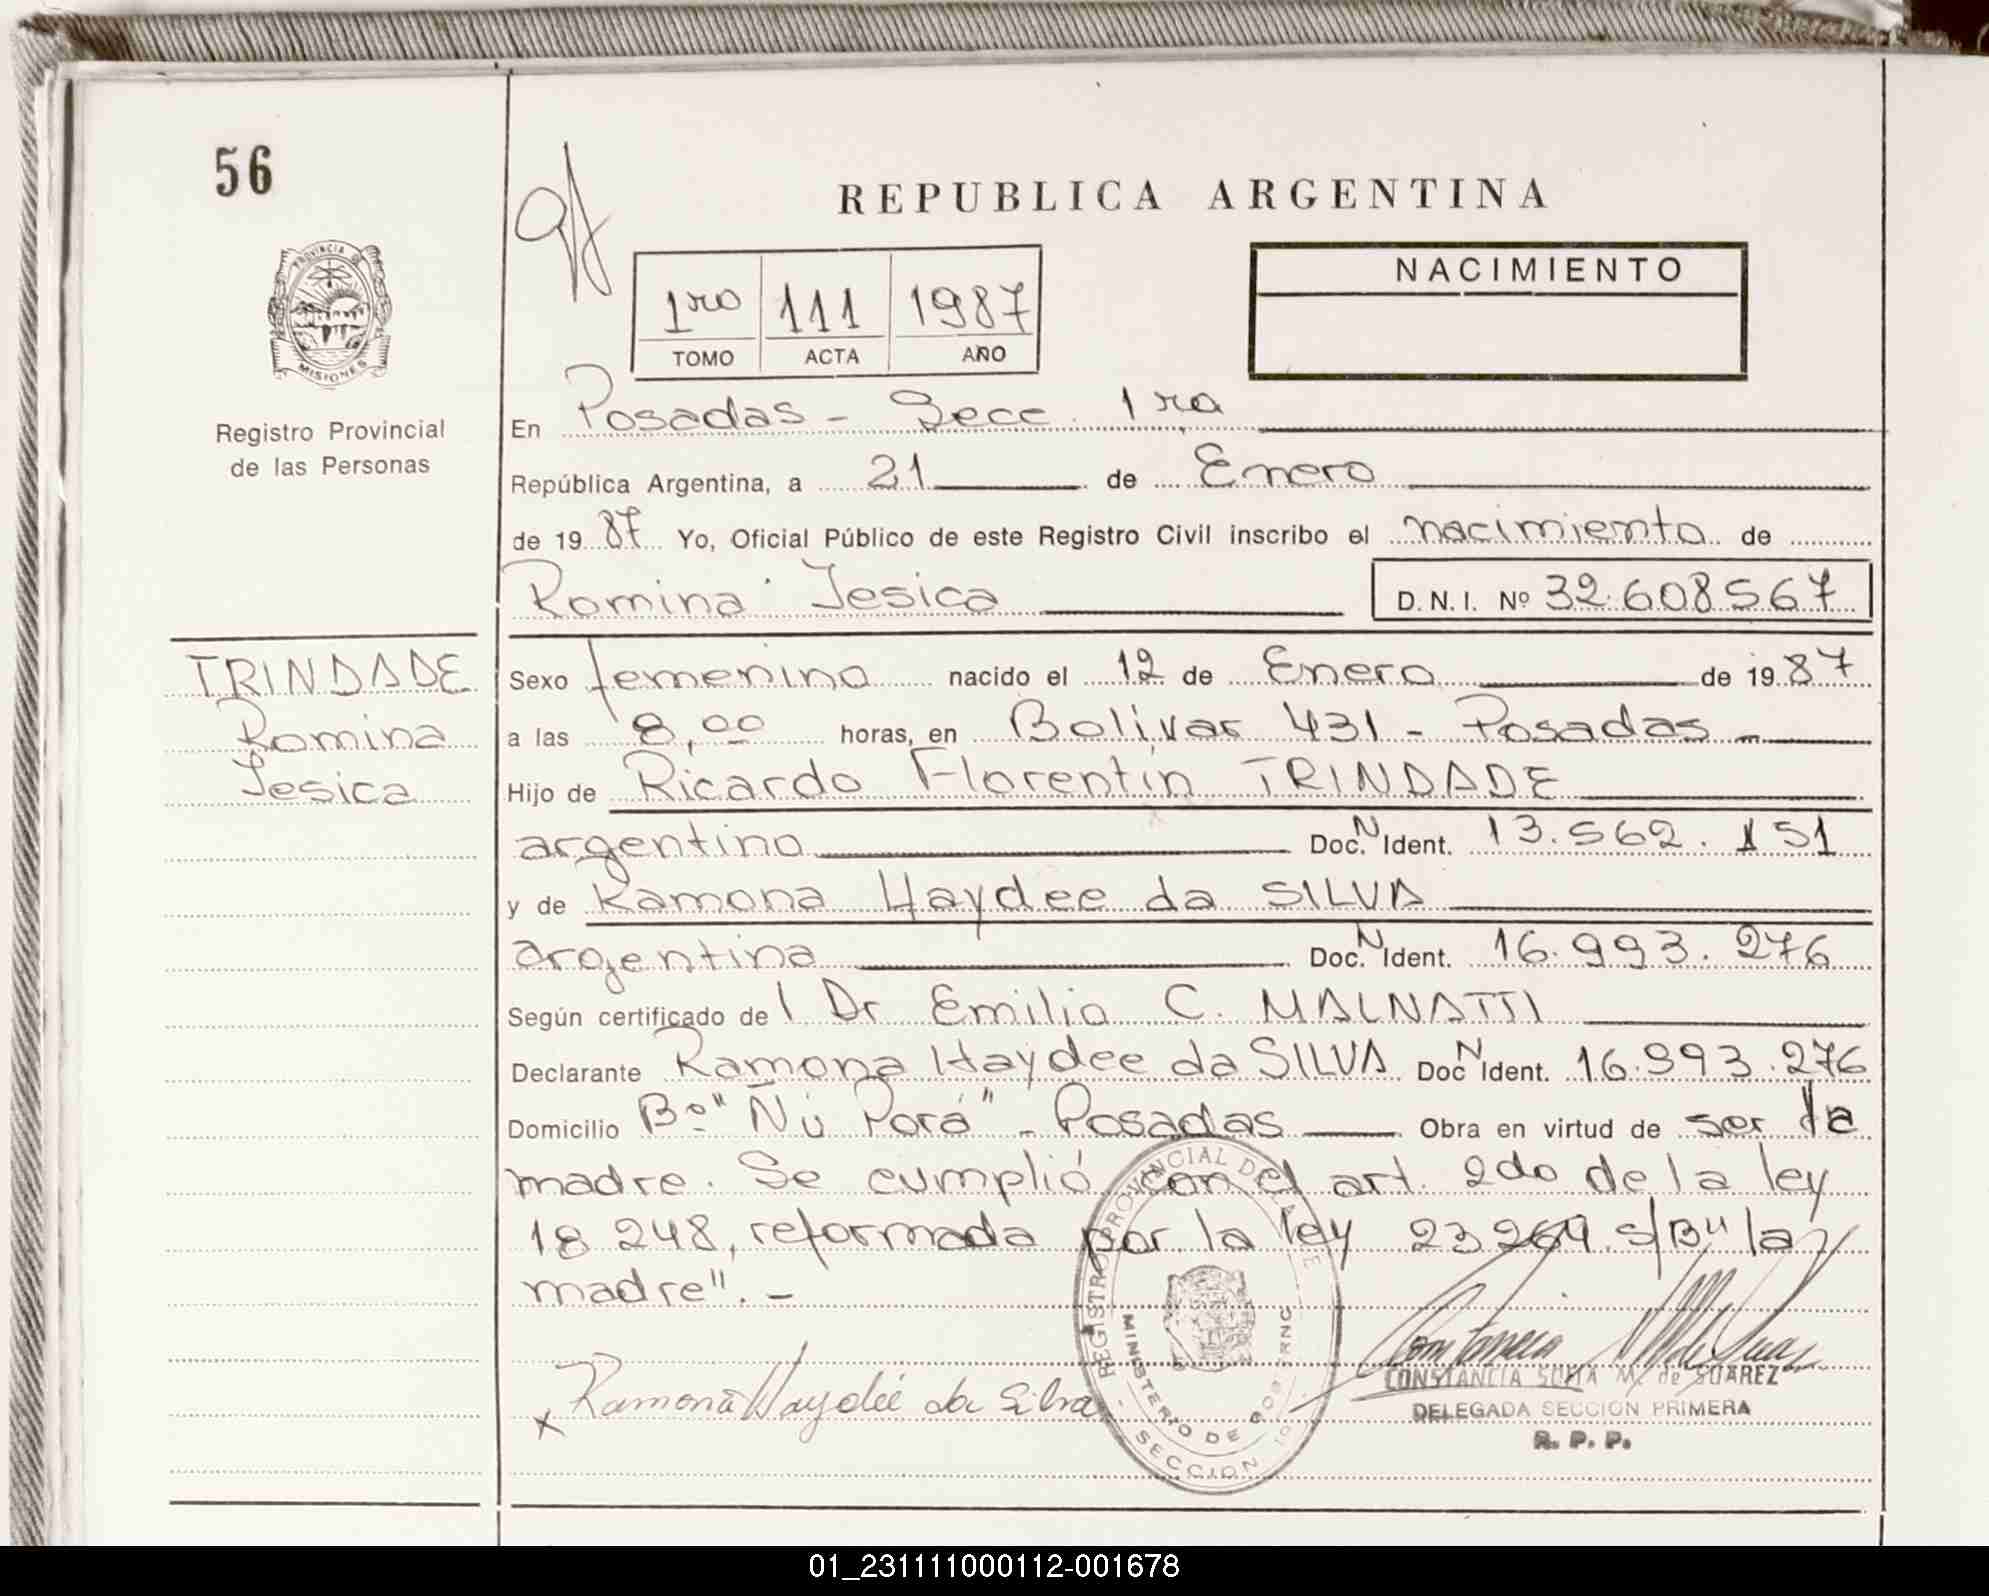 56
REPUBLICA ARGENTINA
PROVINCIA DE
MISIONES
Registro Provincial
de las Personas
1ro 111 1987
TOMO ACTA AÑO
NACIMIENTO
En Posadas - Secc. 1ra
República Argentina, a 21 de Enero
de 1987 Yo, Oficial Público de este Registro Civil inscribo el nacimiento de
Romina Jesica D.N.I. Nº 32.608567
TRINDADE
Romina
Jesica
Sexo femenino nacido el 12 de Enero de 1987
a las 8,00 horas, en Bolivar 431 - Posadas -
Hijo de Ricardo Florentín TRINDADE
argentino Doc. N Ident. 13.562.151
y de Ramona Haydee da SILVA
argentina Doc. N Ident. 16.993.276
Según certificado de l Dr Emilio C. MALNATTI
Declarante Ramona Haydee da SILVA Doc N Ident. 16.993.276
Domicilio Bº "Ñú Porá" - Posadas Obra en virtud de ser la
madre. Se cumplió con el art. 2do de la ley
18248, reformada por la ley 23264. s/B "la
madre". -
x Ramona Haydée da Silva
REGISTRO PROVINCIAL DE LA
MINISTERIO DE
SECCION
CONSTANCIA SOFIA M. de SUAREZ
DELEGADA SECCION PRIMERA
R. P. P.
01_231111000112-001678